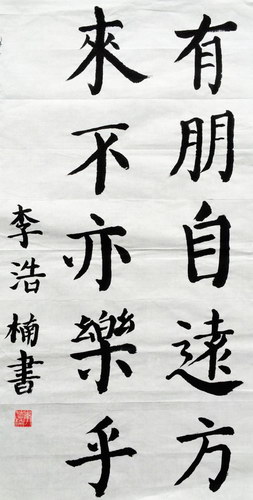 有朋自遠方
來不亦樂乎
李浩楠書